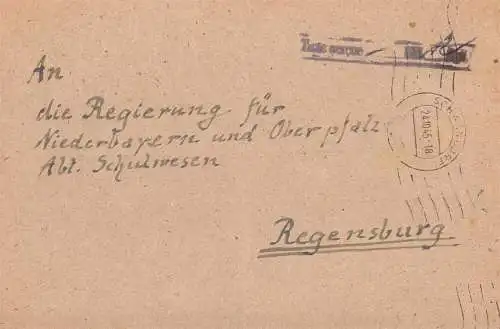 Taxe perçue
An
die Regierung für
Niederbayern und Oberpfalz
Abt. Schulwesen
24.10.45-18
Regensburg